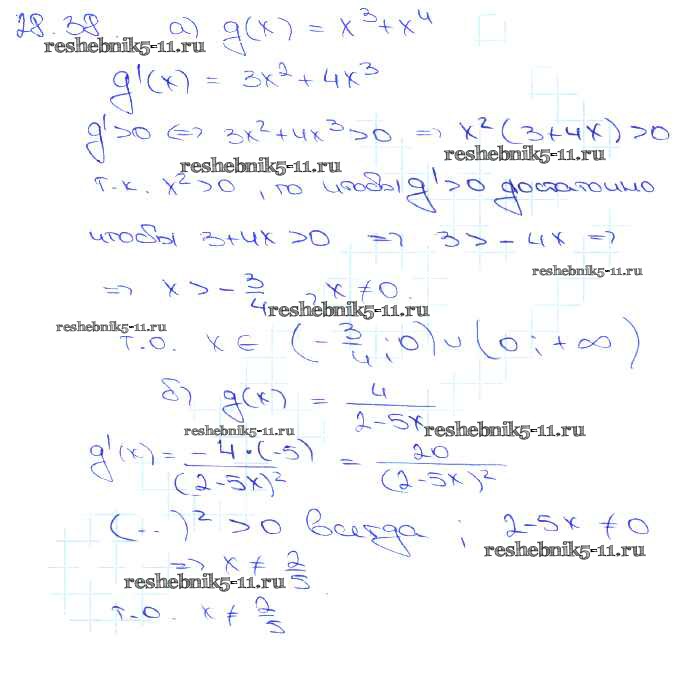 28.38 а) g(x) = x³ + x⁴
reshebnik5-11.ru
g'(x) = 3x² + 4x³
g' > 0 <=> 3x² + 4x³ > 0 => x²(3 + 4x) > 0
reshebnik5-11.ru reshebnik5-11.ru
т.к. x² > 0, то чтобы g' > 0 достаточно
чтобы 3 + 4x > 0 => 3 > -4x =>
reshebnik5-11.ru
=> x > -3/4, x ≠ 0.
reshebnik5-11.ru
reshebnik5-11.ru
т.о. x ∈ (-3/4; 0) ∪ (0; +∞)
б) g(x) = 4/(2-5x)
reshebnik5-11.ru reshebnik5-11.ru
g'(x) = -4·(-5)/(2-5x)² = 20/(2-5x)²
(...)² > 0 всегда; 2-5x ≠ 0
reshebnik5-11.ru
=> x ≠ 2/5
reshebnik5-11.ru
т.о. x ≠ 2/5